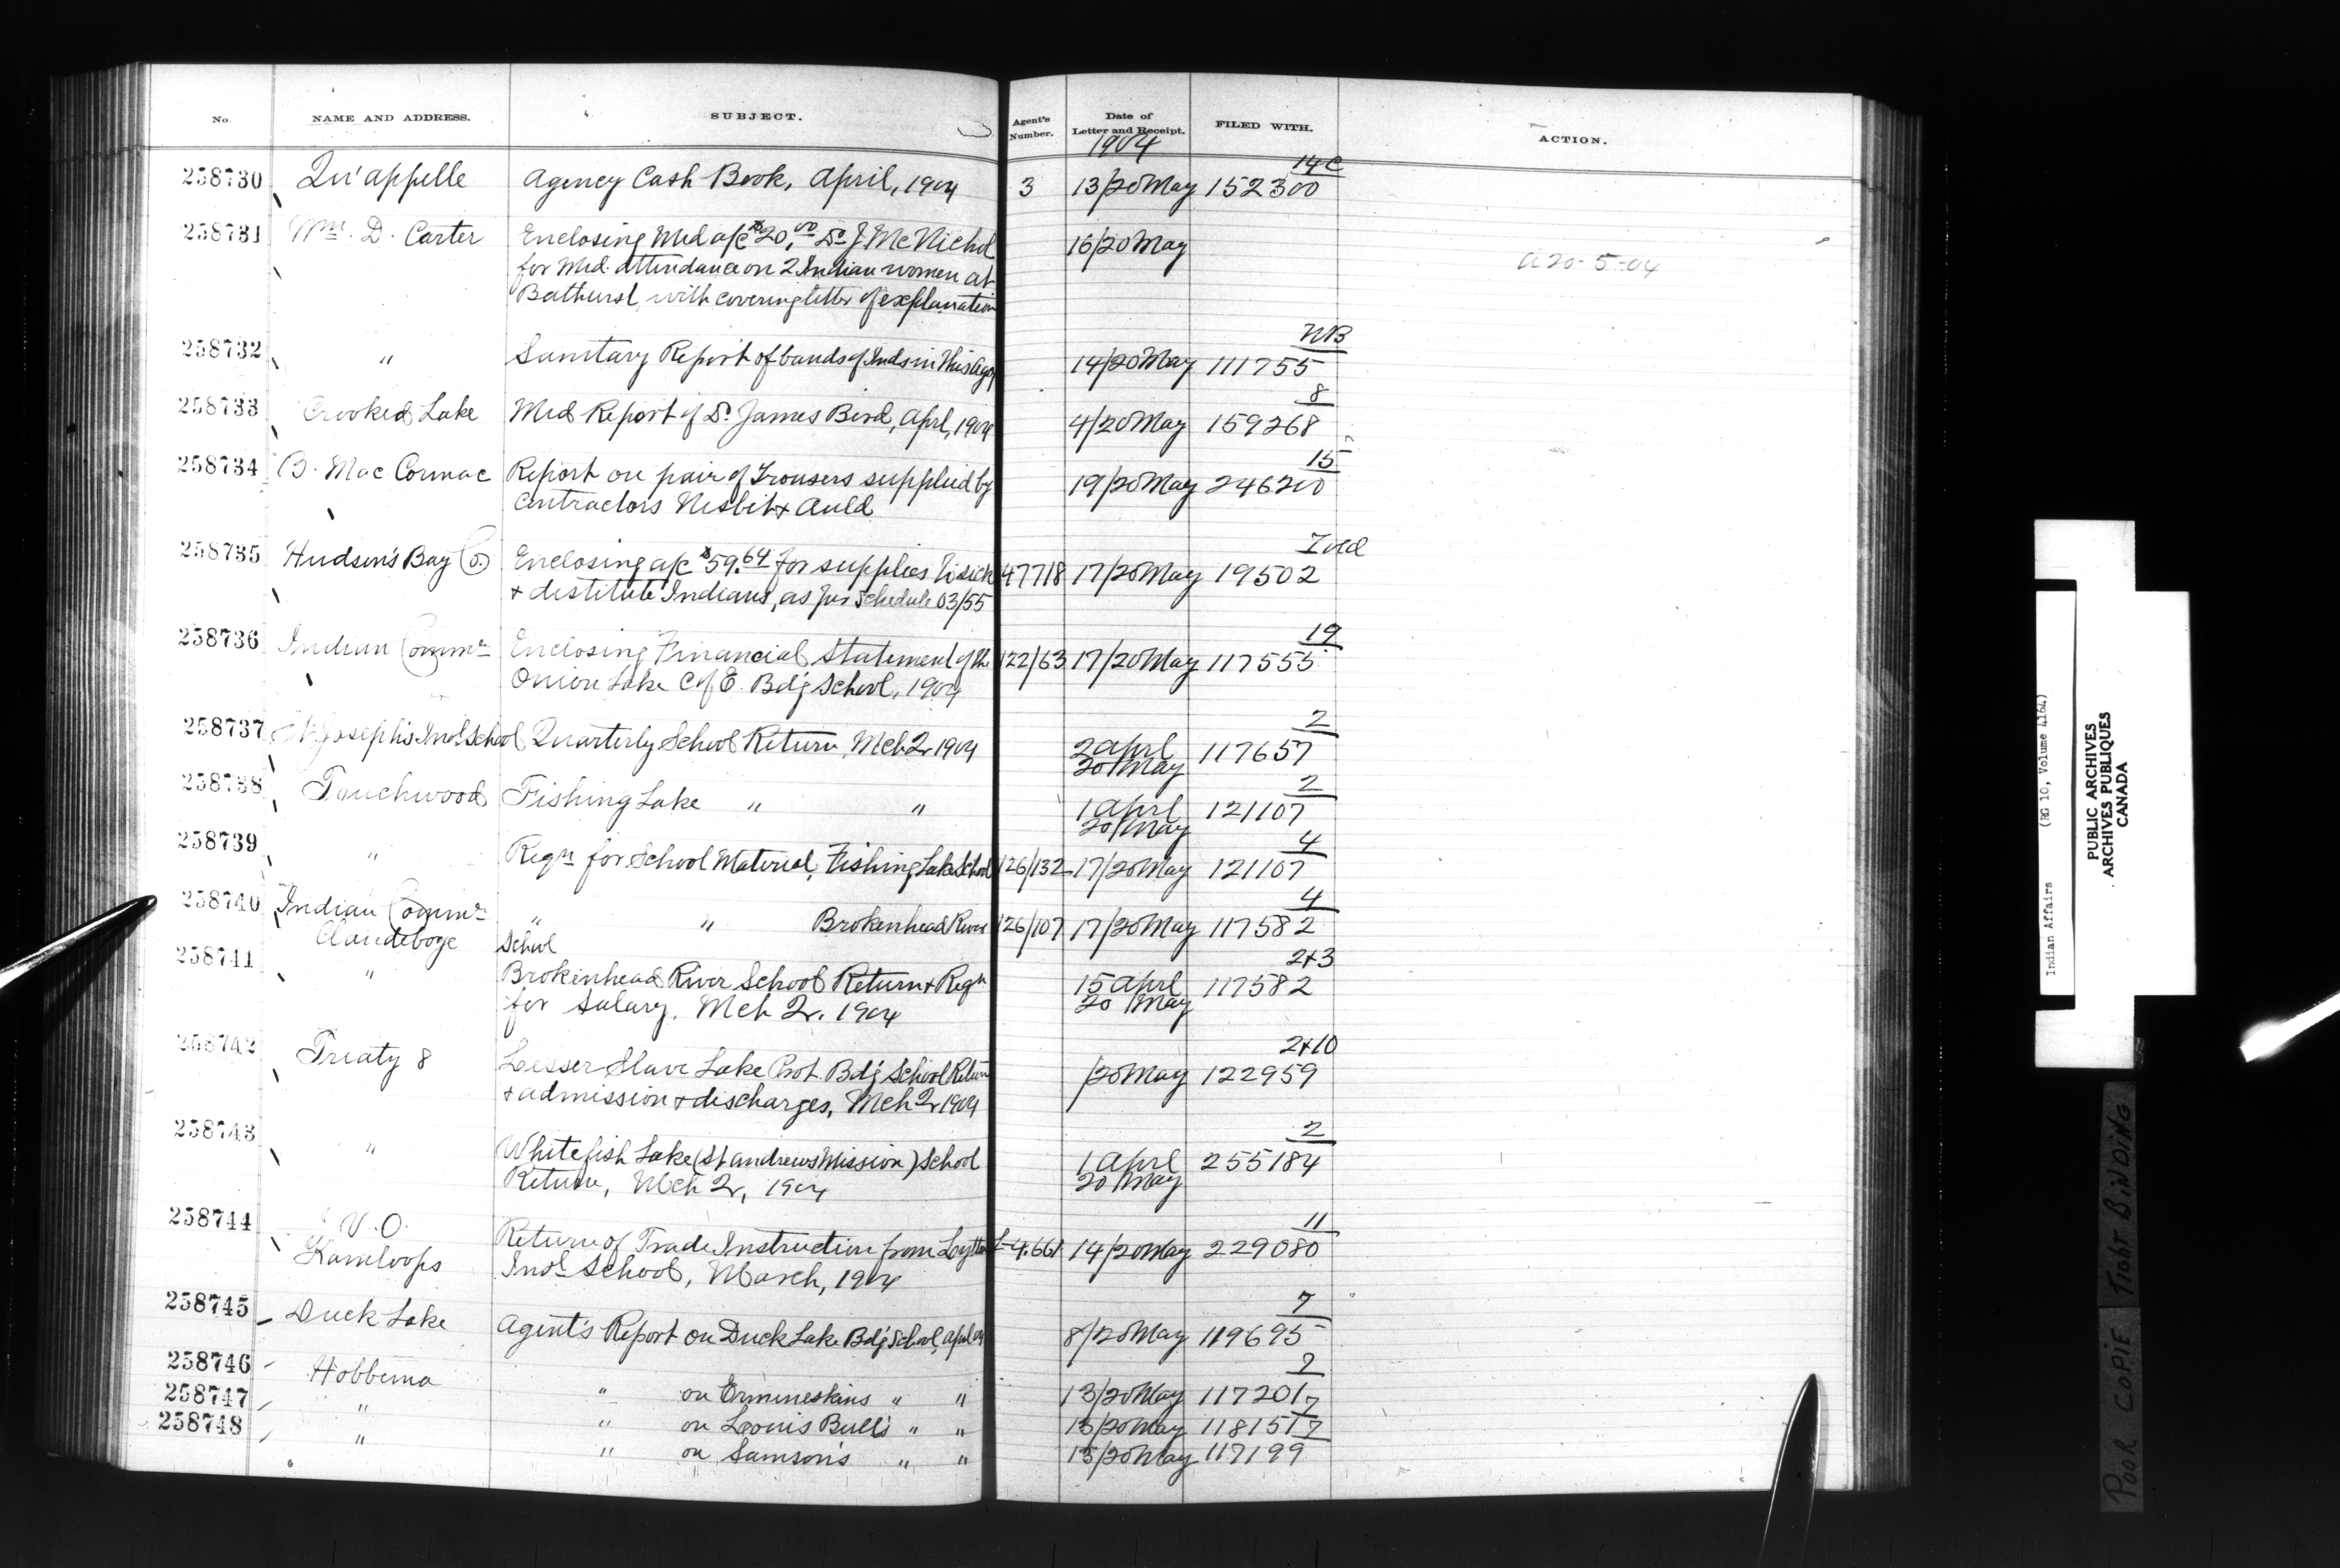 No. NAME AND ADDRESS. SUBJECT. Agent's Number. Date of Letter and Receipt. FILED WITH. ACTION.
1904
258730 Qu'appelle Agency Cash Book, April, 1904 3 13/20 May 14C 152300
258731 Wm. D. Carter Enclosing Med a/c $20.00 Dr J. McNichol 16/20 May
for Med. attendance on 2 Indian women at a 20-5-04
Bathurst, with covering letter of explanation
258732 " Sanitary Report of bands of Inds in this Agcy 14/20 May NB 111755
258733 Crooked Lake Med Report of Dr James Bird, Aprl, 1904 4/20 May 8 159268
258734 B. MacCormac Report on pair of Trousers supplied by 19/20 May 15 246200
Contractors Nisbet & Auld
258735 Hudson's Bay Co. Enclosing a/c $59.64 for supplies to sick 47718 17/20 May 19502
& destitute Indians, as per Schedule 03/55
258736 Indian Commr Enclosing Financial Statement of the 122/63 17/20 May 19 117555
Onion Lake C of E. Bdg School, 1904
258737 St Joseph's Indl School Quarterly School Return, Mch Qr 1904 2 Aprl 20 May 2 117657
258738 Touchwood Fishing Lake " " 1 Aprl 20 May 2 121107
258739 " Reqn for School Material, Fishing Lake School 126/132 17/20 May 4 121107
258740 Indian Commr " " Brokenhead River 126/107 17/20 May 4 117582
Clandeboye School
258741 " Brokenhead River School Return & Reqn 15 Aprl 20 May 2&3 117582
for Salary. Mch Qr. 1904
258742 Treaty 8 Lesser Slave Lake Prot. Bdg School Return /20 May 2&10 122959
& admission & discharges, Mch Qr 1904
258743 " Whitefish Lake (St Andrews Mission) School 1 Aprl 20 May 2 255184
Return, Mch Qr, 1904
258744 V.O. Return of Trade Instruction from Lytton L-4.661 14/20 May 11 229080
Kamloops Indl School, March, 1904
258745 Duck Lake Agent's Report on Duck Lake Bdg School, April 04 8/20 May 7 119695
258746 Hobbema " on Ermineskins " " 13/20 May 7 117201
258747 " " on Louis Bull's " " 13/20 May 7 118151
258748 " " on Samson's " " 13/20 May 7 117199
Indian Affairs (RG 10, Volume 4164)
PUBLIC ARCHIVES
ARCHIVES PUBLIQUES
CANADA
POOR COPIE TIGHT BINDING